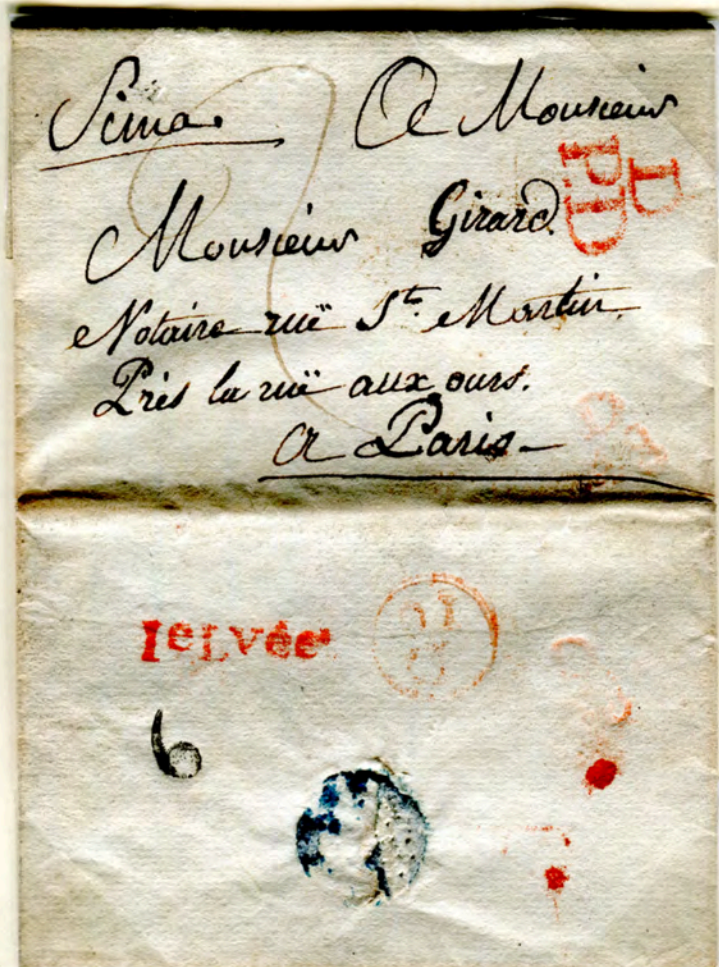 Seine. A Monsieur
Monsieur Girard.
Notaire ruë St. Martin.
Près la ruë aux ours.
A Paris
D
P.D
1eLvée
6